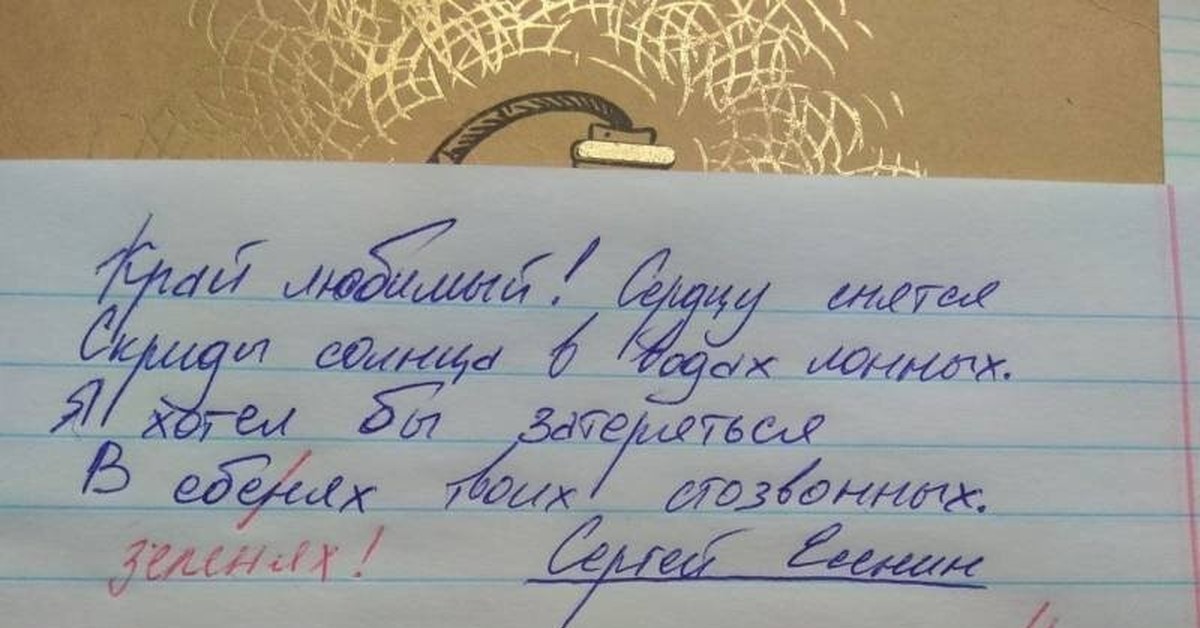 Край любимый! Сердцу снятся
Скирды солнца в водах лонных.
Я хотел бы затеряться
В ебенях твоих стозвонных.
зеленях!
Сергей Есенин